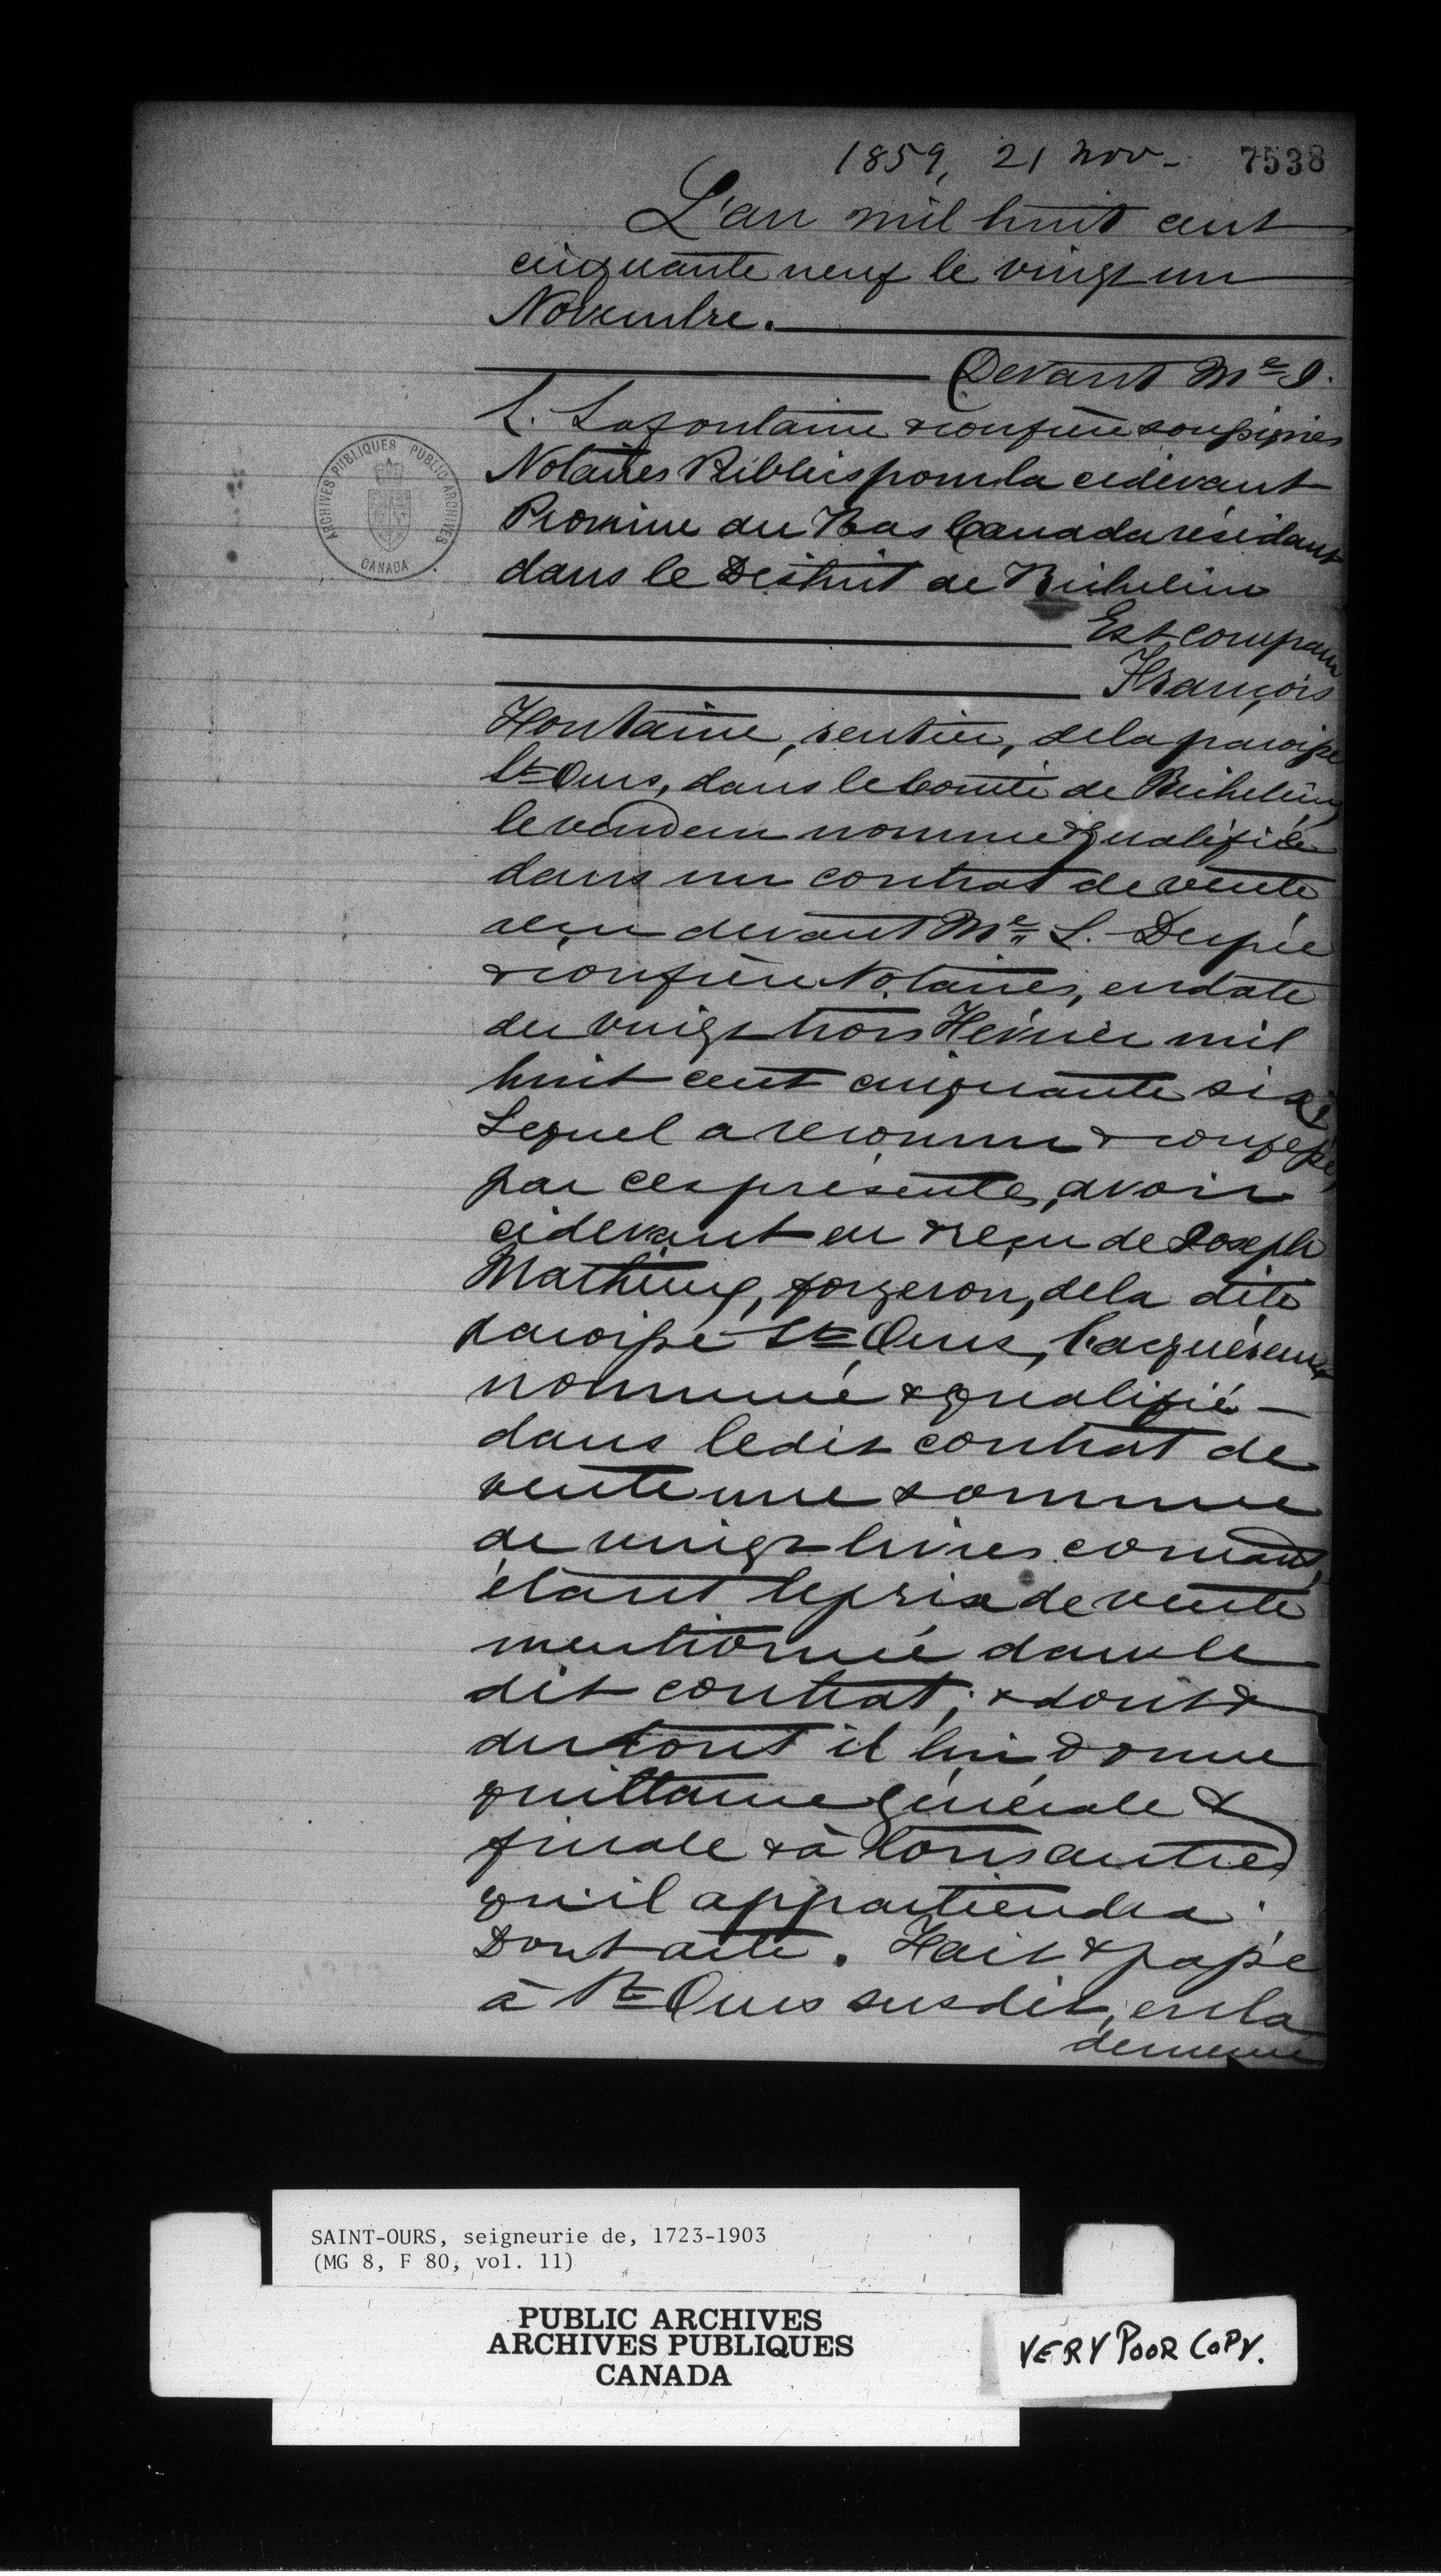 1859, 21 Nov- 7538
L'an mil huit cent
cinquante neuf le vingt un
Novembre.
Devant Me J.
L. Lafontaine & confrère soussignés
Notaires Publics pour la cidevant
Province du Bas Canada résidant
dans le District de Richelieu
Est comparu
François
Fontaine, rentier, de la paroisse
St Ours, dans le Comté de Richelieu,
le vendeur nommé & qualifié
dans un contrat de vente
reçu devant Me L. Dupré
& confrère Notaires, en date
du vingt trois Février mil
huit cent cinquante six;
Lequel a reconnu & confessé,
par ces présentes, avoir
cidevant eu & reçu de Joseph
Mathieu, forgeron, de la dite
paroisse St Ours, l'acquéreur
nommé & qualifié -
dans ledit contrat de
vente une somme
de vingt livres courant,
étant le prix de vente
mentionné dans le
dit contrat; & dont &
du tout il lui donne
quittance générale &
finale & à tous autres
qu'il appartiendra.
Dont acte. Fait & passé
à St Ours susdit, en la
demeure
ARCHIVES PUBLIQUES PUBLIC ARCHIVES
CANADA
SAINT-OURS, seigneurie de, 1723-1903
(MG 8, F 80, vol. 11)
PUBLIC ARCHIVES
ARCHIVES PUBLIQUES
CANADA
VERY POOR COPY.